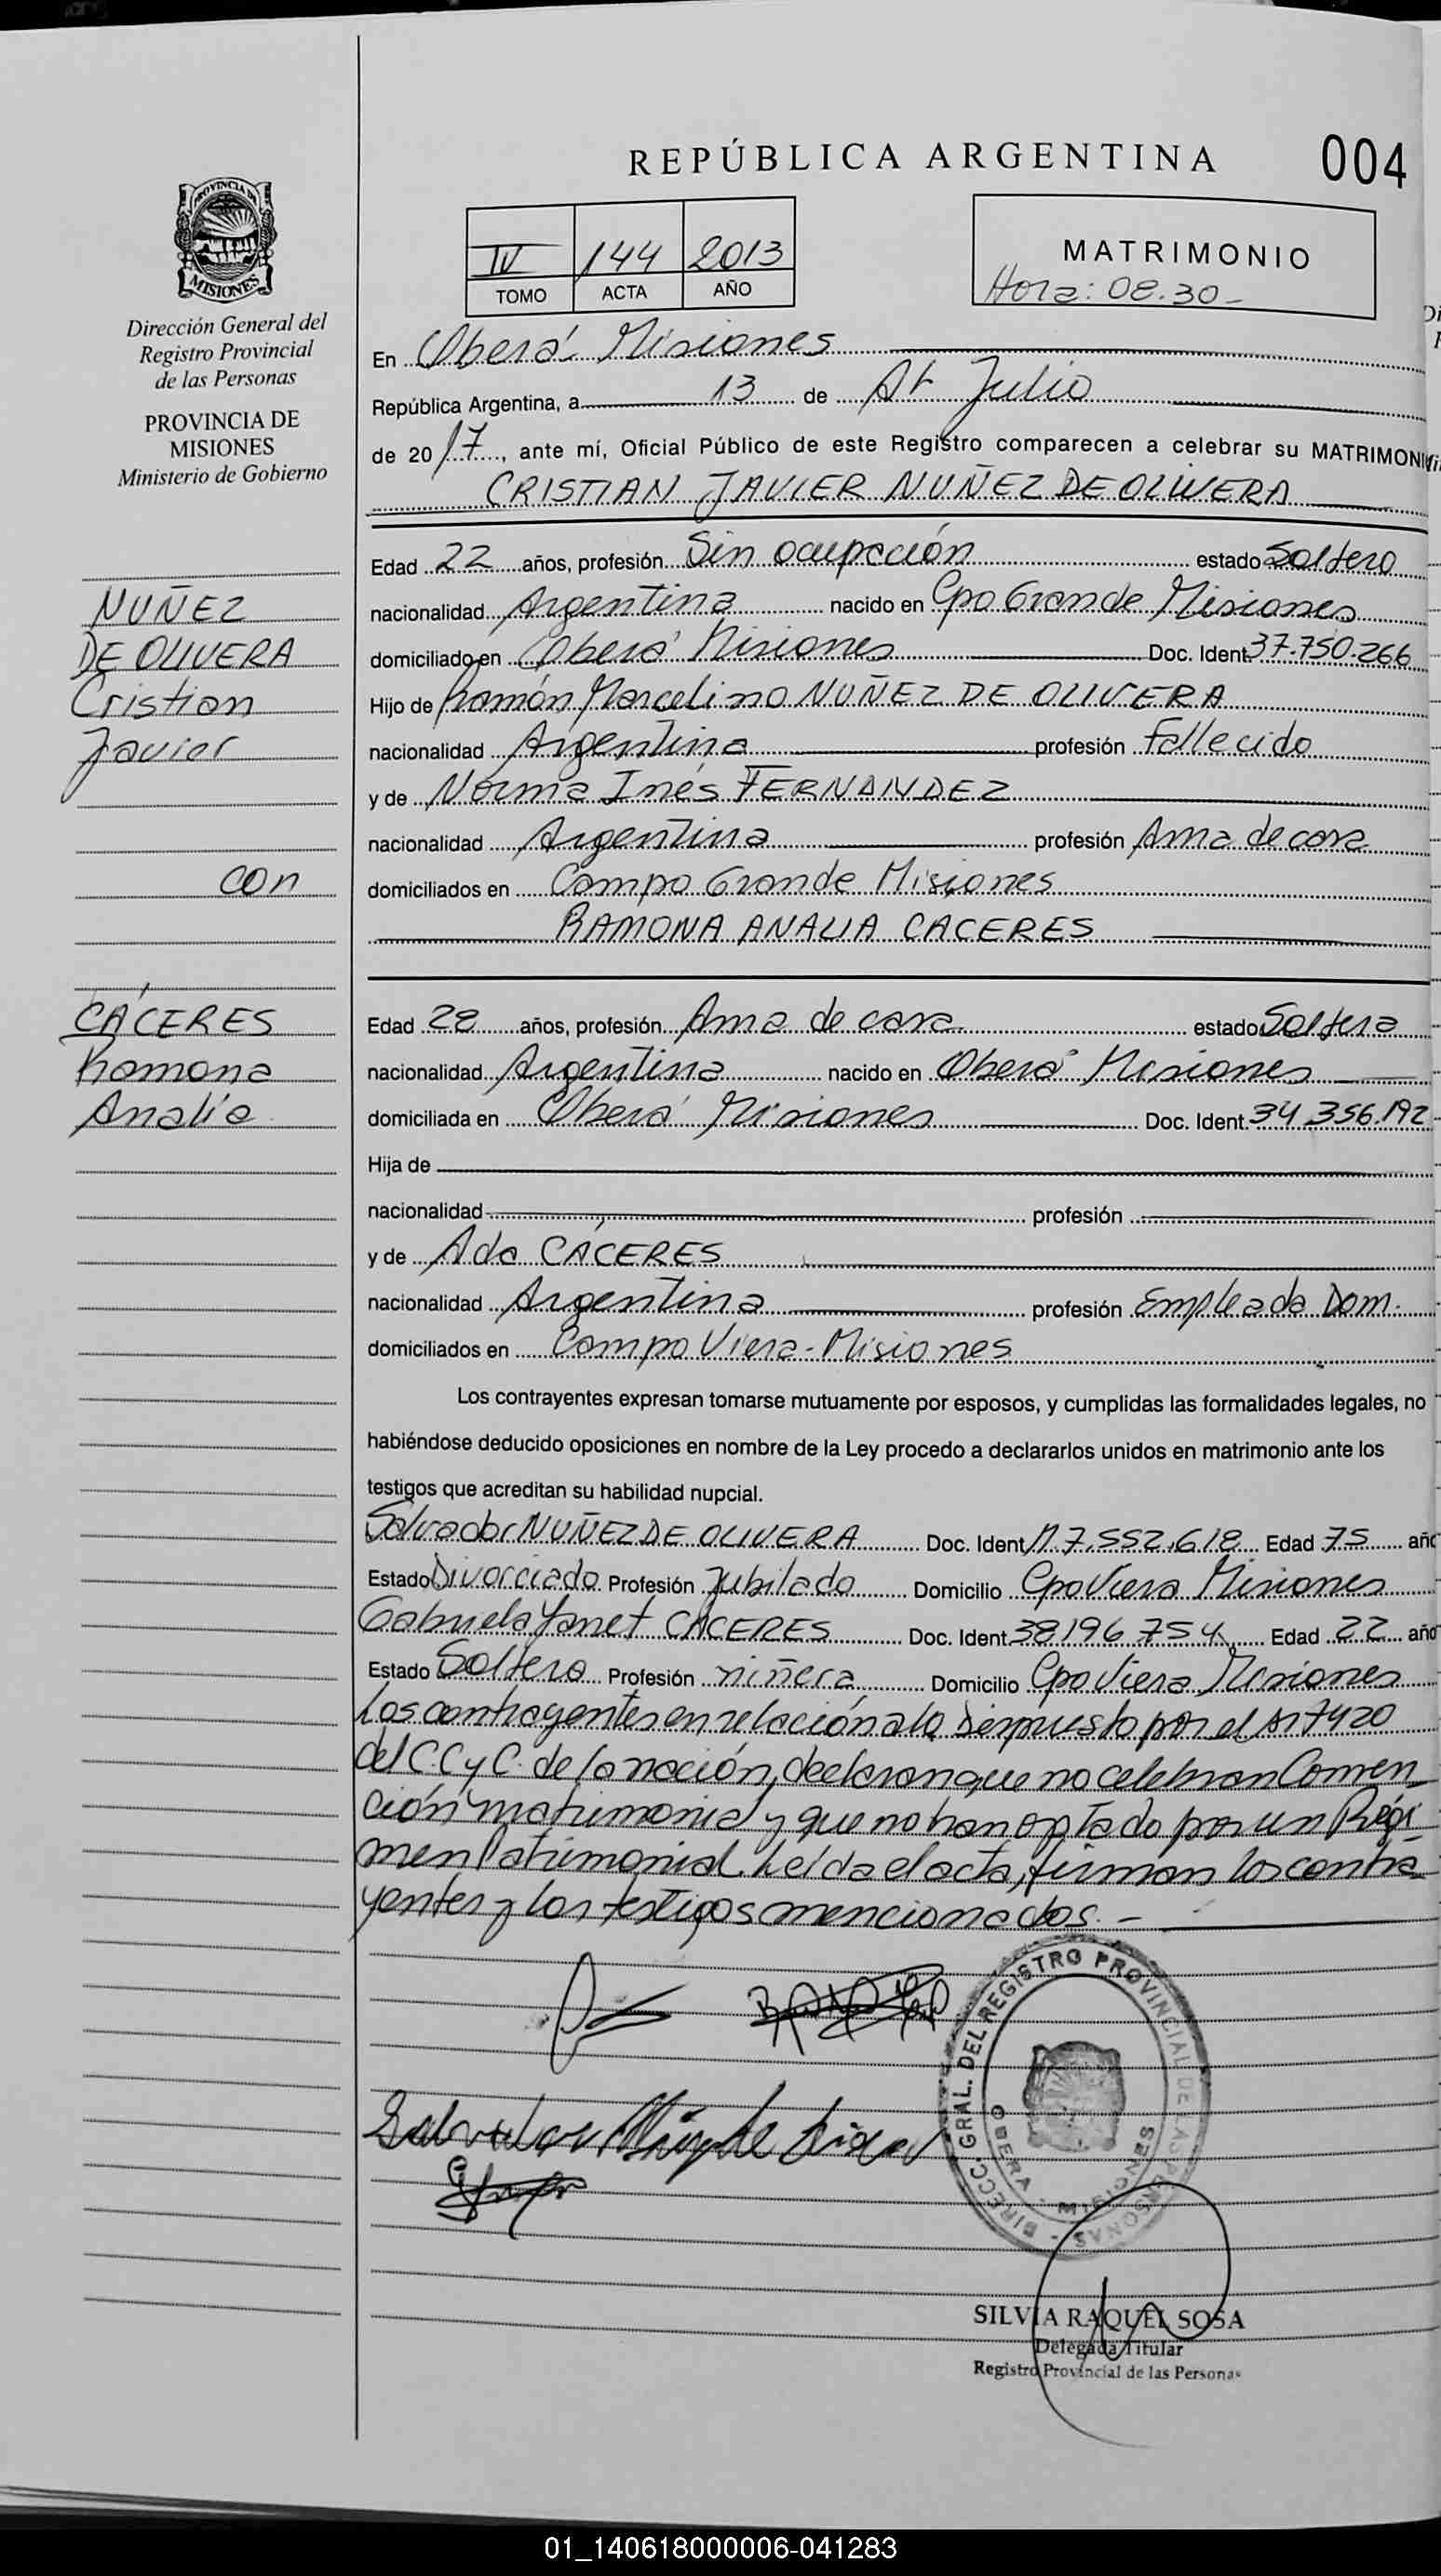 REPÚBLICA ARGENTINA
004
PROVINCIA DE
MISIONES
Dirección General del
Registro Provincial
de las Personas
PROVINCIA DE
MISIONES
Ministerio de Gobierno
IV 144 2013
TOMO ACTA AÑO
MATRIMONIO
Hora: 08.30
En Oberá Misiones
República Argentina, a 13 de Julio
de 2017, ante mí, Oficial Público de este Registro comparecen a celebrar su MATRIMONI
CRISTIAN JAVIER NUÑEZ DE OLIVERA
NUÑEZ
DE OLIVERA
Cristian
Javier
con
CÁCERES
Ramona
Analía
Edad 22 años, profesión Sin ocupación estado Soltero
nacionalidad Argentina nacido en Cpo Grande Misiones
domiciliado en Oberá Misiones Doc. Ident. 37.750.266
Hijo de Ramón Marcelino NUÑEZ DE OLIVERA
nacionalidad Argentina profesión Fallecido
y de Norma Inés FERNANDEZ
nacionalidad Argentina profesión Ama de casa
domiciliados en Campo Grande Misiones
RAMONA ANALIA CACERES
Edad 28 años, profesión Ama de casa estado Soltera
nacionalidad Argentina nacido en Oberá Misiones
domiciliada en Oberá Misiones Doc. Ident. 34.356.192
Hija de
nacionalidad profesión
y de Ada CÁCERES
nacionalidad Argentina profesión Empleada Dom.
domiciliados en Campo Viera - Misiones
Los contrayentes expresan tomarse mutuamente por esposos, y cumplidas las formalidades legales, no
habiéndose deducido oposiciones en nombre de la Ley procedo a declararlos unidos en matrimonio ante los
testigos que acreditan su habilidad nupcial.
Salvador NUÑEZ DE OLIVERA Doc. Ident M 7.552.618 Edad 75 año
Estado Divorciado Profesión Jubilado Domicilio Cpo Viera Misiones
Gabriela Yanet CÁCERES Doc. Ident 38196754 Edad 22 año
Estado Soltera Profesión niñera Domicilio Cpo Viera Misiones
Los contrayentes en relación a lo Dispuesto por el Art 420
del C.C y C. de la nación, declaran que no celebran Conven
ción matrimonial y que no han optado por un Régi
men Patrimonial. Leída el acta, firman los contra
yentes y los testigos mencionados. -
DIRECC. GRAL. DEL REGISTRO PROVINCIAL DE LAS PERSONAS
OBERA - MISIONES
SILVIA RAQUEL SOSA
Delegada Titular
Registro Provincial de las Personas
01_140618000006-041283